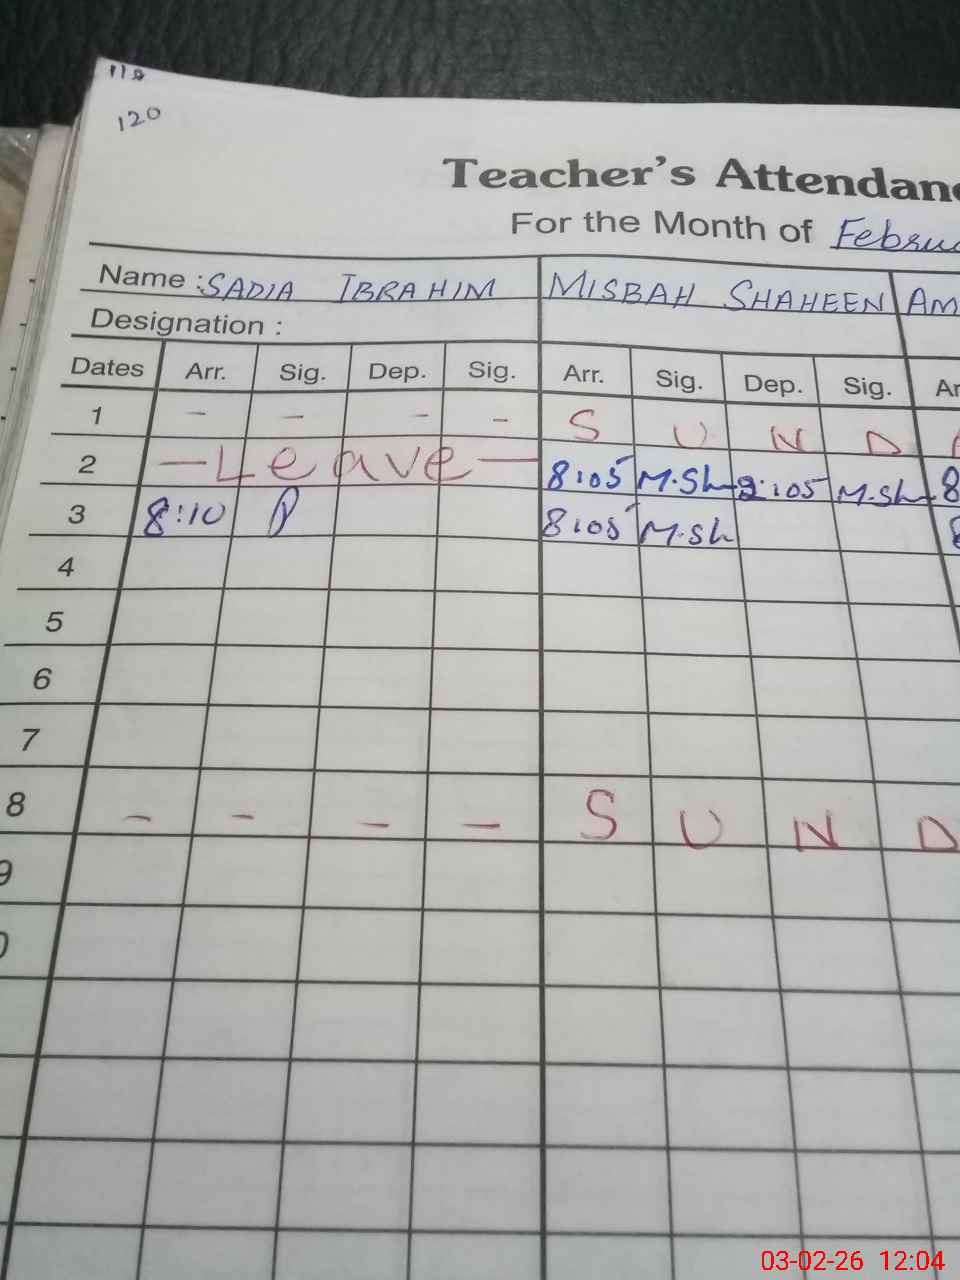 120
Teacher's Attendanc
For the Month of Februa
Name : SADIA IBRAHIM MISBAH SHAHEEN AM
Designation :
Dates Arr. Sig. Dep. Sig. Arr. Sig. Dep. Sig. Ar
1 - - - - S U N D
2 - Leave - 8:05 M.Sh 2:05 M.Sh 8
3 8:10 8:05 M.Sh
4
5
6
7
8 - - - - S U N D
9
0
03-02-26 12:04